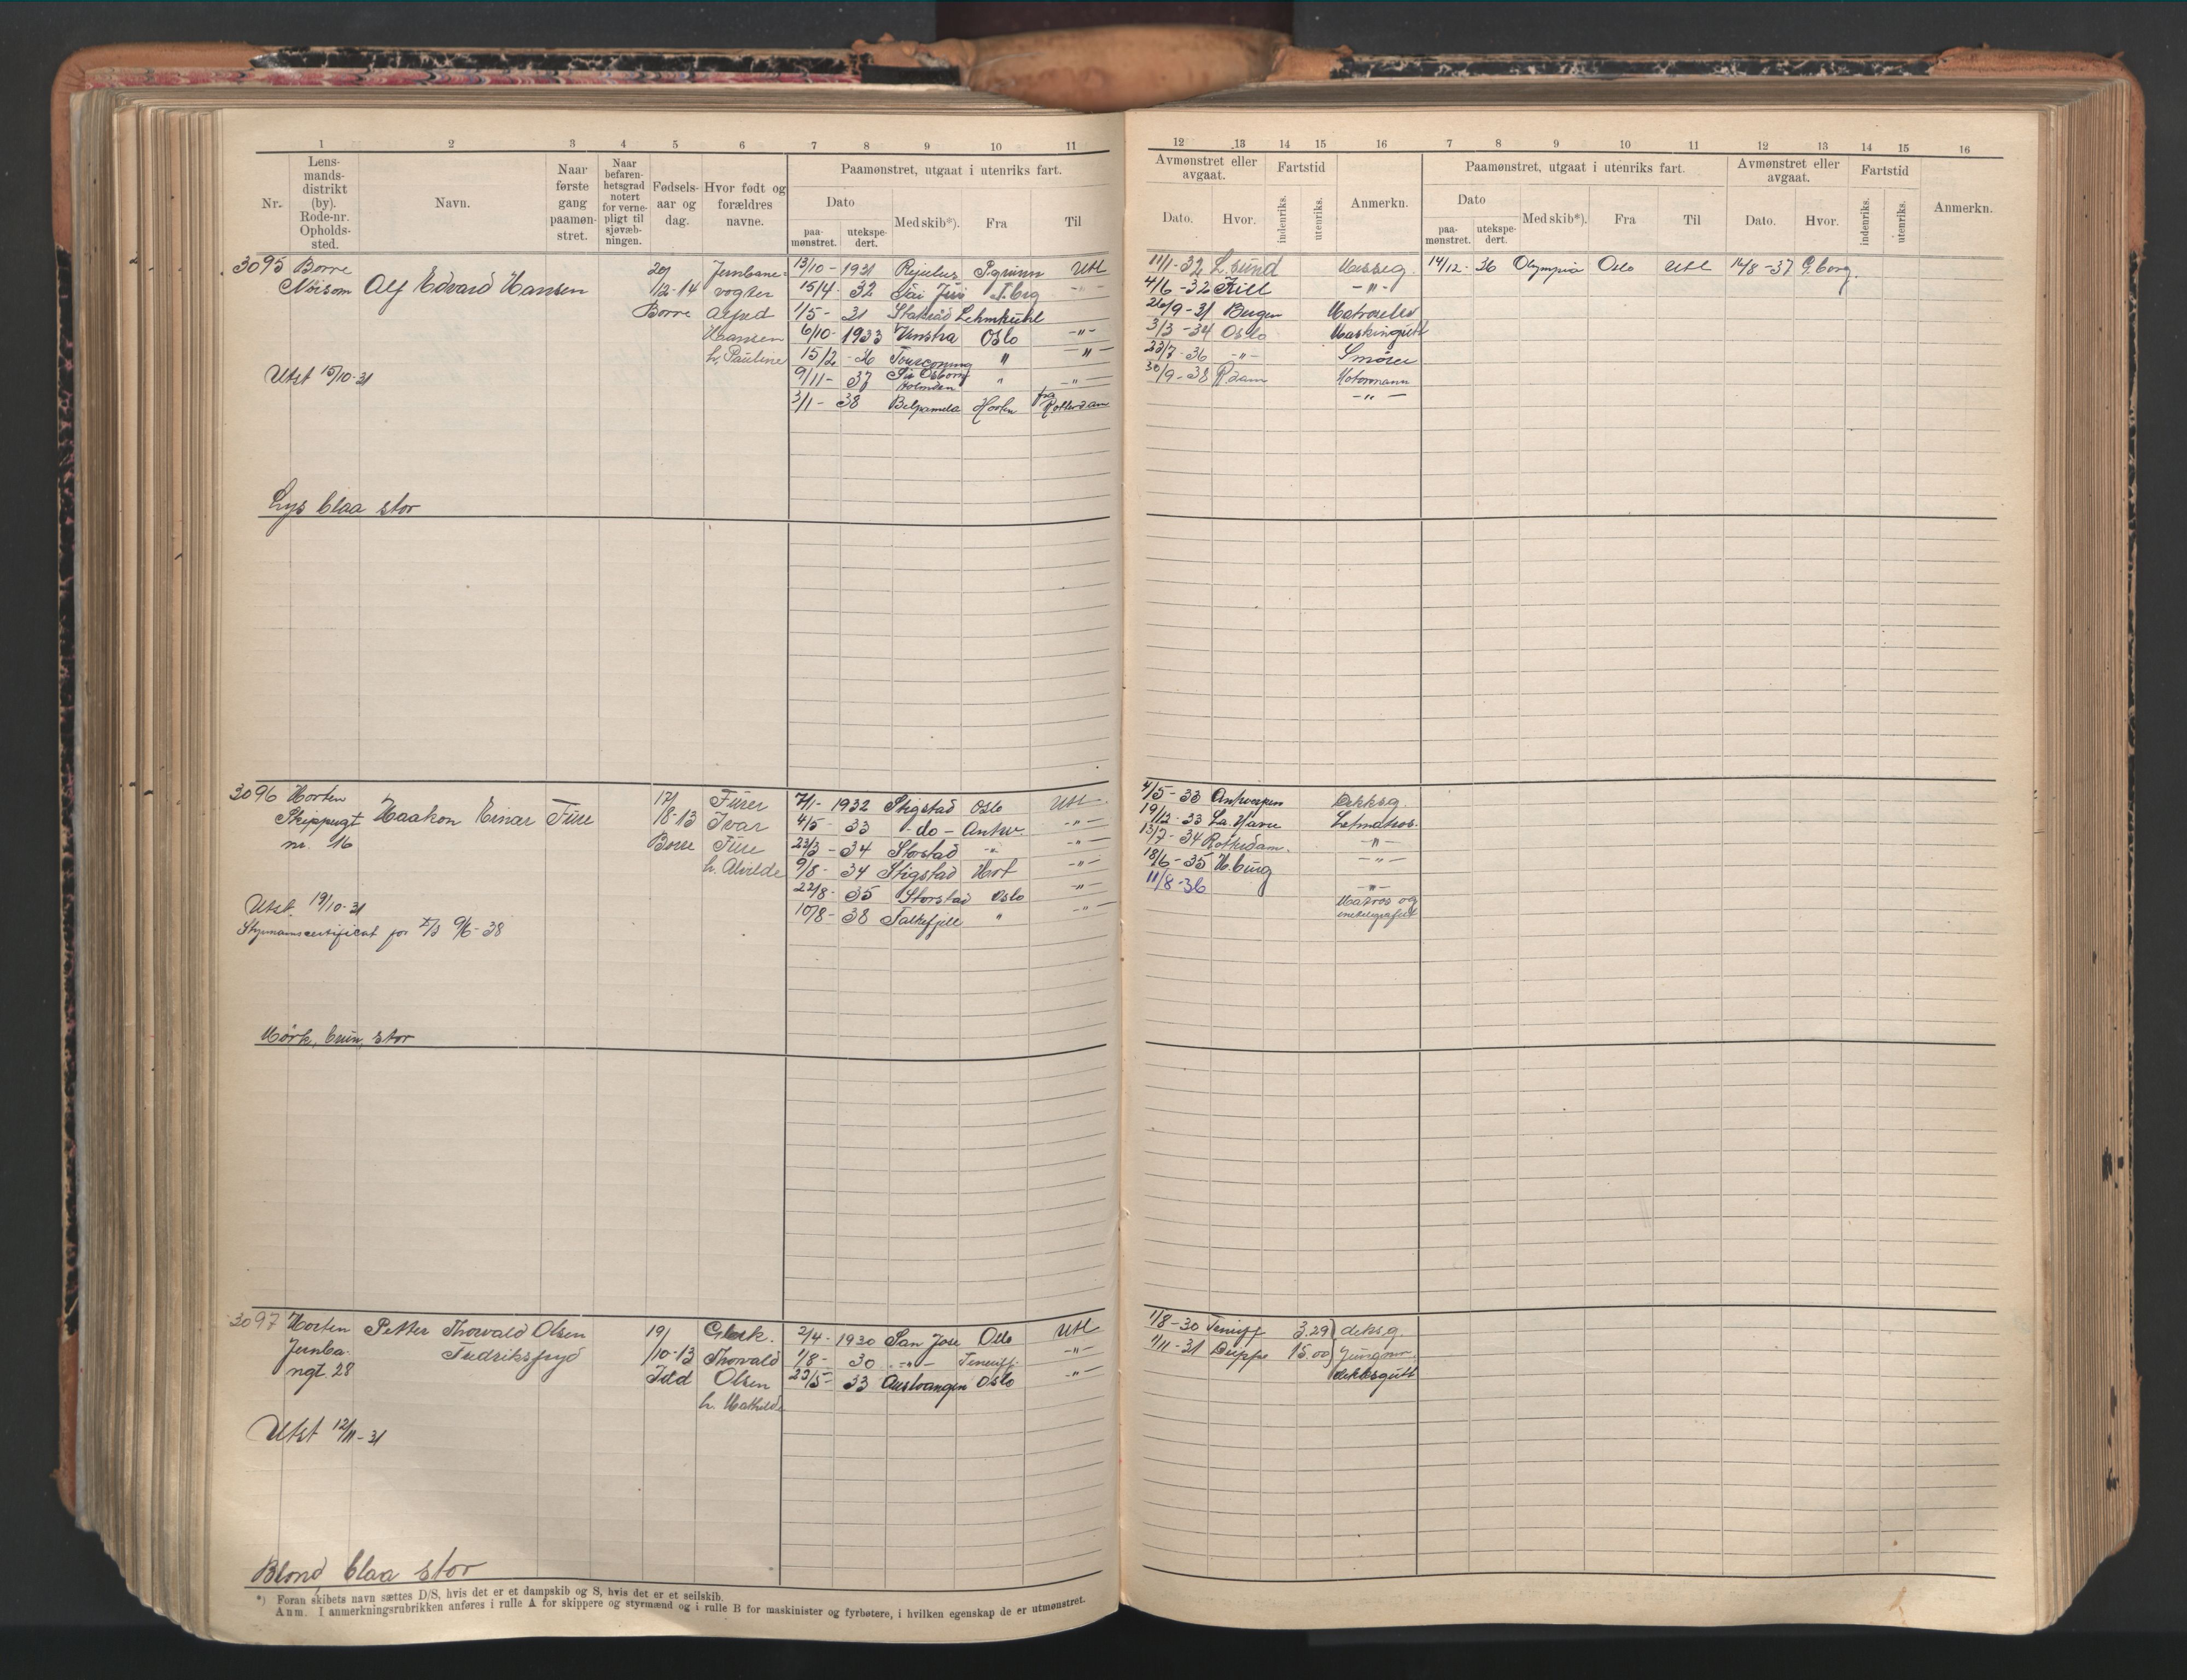 1 2 3 4 5 6 7 8 9 10 11
Nr. Lensmandsdistrikt (by). Rode-nr. Opholdssted. Navn. Naar første gang paamønstret. Naar befarenhetsgrad notert for vernepligt til sjøvæbningen. Fødselsaar og dag. Hvor født og forældres navne. Paamønstret, utgaat i utenriks fart.
Dato paamønstret. utekspedert. Med skib*). Fra Til
3095 Borre 20/ Jernbane- 13/10 - 1931 P.grunn Utl
Alf Edvard Hansen 1/2-14 vogter 15/4 - 32 T.brg -"-
Borre 1/5 - 31 Statsraad Lehmkuhl
Hansen 6/10 - 1933 Oslo -"-
h. Pauline 15/2 - 36 Tourcoing " -"-
Utst 15/10-31 9/11 - 37 Sir Osborn Holmden " -"-
3/1 - 38 Belpamela Horten fra Rotterdam
Lys blaa stor
3096 Horten 17/ Fürer 7/1 - 1932 Stigstad Oslo Utl
Skippergt Haakon Einar Füre 8-13 Ivar 4/5 - 33 - do - Antw. -"-
nr. 16 Borre Füre 23/3 - 34 Storstad -"- -"-
h. Alvilde 9/8 - 34 Stigstad Hort -"-
22/8 - 35 Storstad Oslo -"-
Utst. 19/10-31 10/8 - 38 Falkefjell " -"-
Styrmannscertifikat for 9/6-38
Mörk, brun, stor
3097 Horten Petter Thorvald Olsen 19/ 2/4 - 1930 San Jose Oslo Utl
Jernba- Fredriksfryd /10-13 Thorvald 1/8 - 30 -"- Teneriff. -"-
ngt 28 Olsen 23/5 - 33 Austvangen Oslo -"-
h. Mathilde
Utst 12/11-31
Blond blaa stor
*) Foran skibets navn sættes D/S, hvis det er et dampskib og S, hvis det er et seilskib.
Anm. I anmerkningsrubrikken anføres i rulle A for skippere og styrmænd og i rulle B for maskinister og fyrbøtere, i hvilken egenskap de er utmønstret.
12 13 14 15 16 7 8 9 10 11 12 13 14 15 16
Avmønstret eller avgaat. Fartstid Anmerkn. Paamønstret, utgaat i utenriks fart. Avmønstret eller avgaat. Fartstid Anmerkn.
Dato. Hvor. indenriks. utenriks. Dato paamønstret. utekspedert. Med skib*). Fra Til Dato. Hvor. indenriks. utenriks.
11/1-32 L.sund Messeg. 14/12 - 36 Olympia Oslo Utl 14/8-37 G.borg.
4/6-32 -"-
26/9-31 Bergen
3/3-34 Oslo Maskingutt
23/7-36 -"- Smörer
30/9-38 R.dam Motormann
-"-
4/5-33 Antwerpen Dekksg.
19/12-33 La. Havre Letmatros.
13/7-34 Rotterdam. -"-
18/6-35 H.burg -"-
11/8-36 -"-
Matros og
1/8-30 Teneriff 3.29) deksg.
1/11-31 Dieppe 15.00) Jungm.
dekksgutt